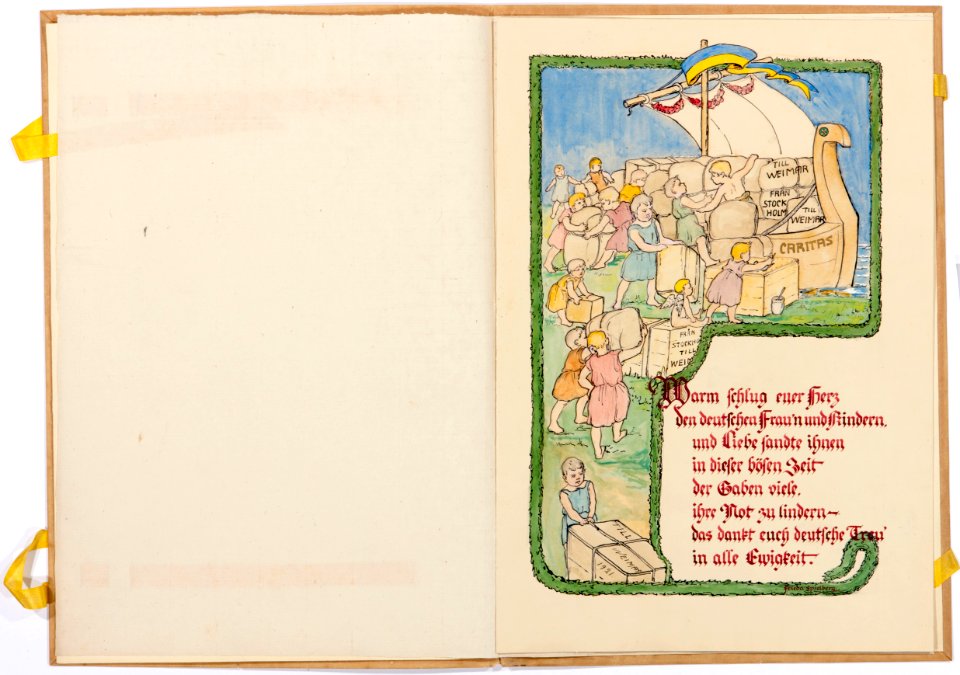 TILL
WEIMAR
FRÅN
STOCK
HOLM
TILL
WEIMAR
CARITAS
FRÅN
STOCKHO
TILL
WEIM
Warm schlug euer Herz
den deutschen Frau'n und Kindern,
und Liebe sandte ihnen
in dieser bösen Zeit
der Gaben viele,
ihre Not zu lindern –
das dankt euch deutsche Treu'
in alle Ewigkeit.
TILL
WEIMAR
1921
Frieda